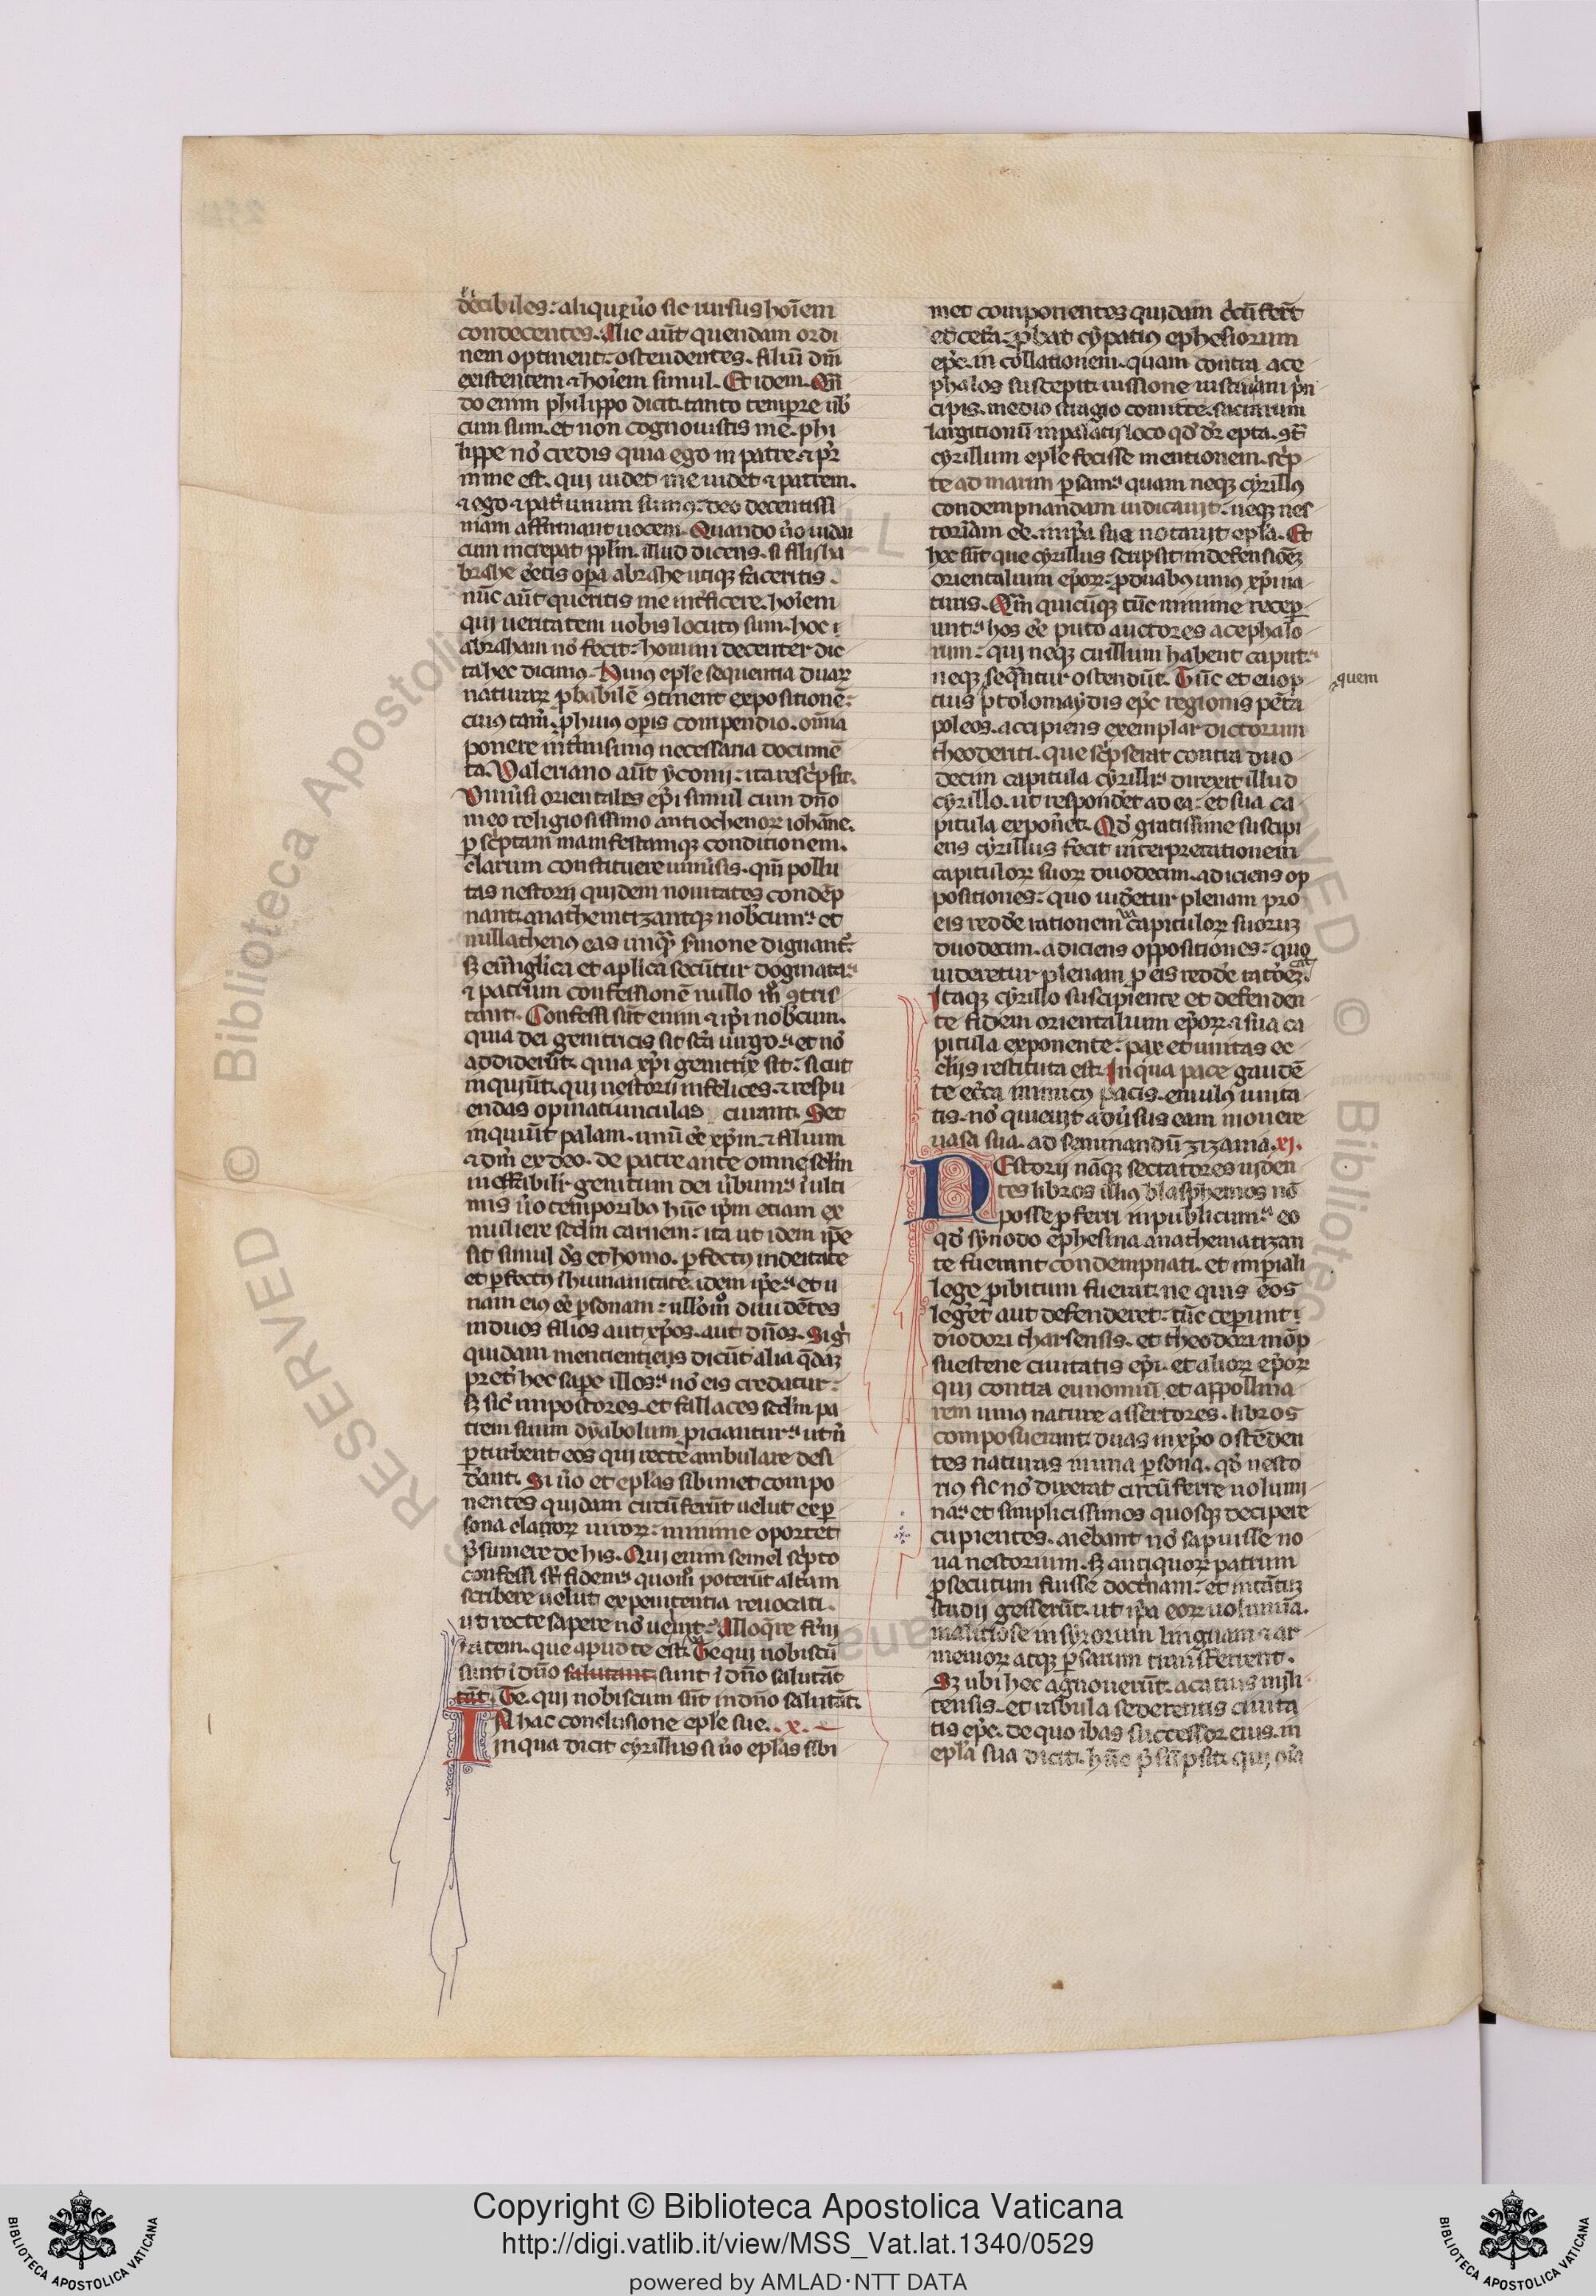 decibiles. aliqueẜ u̾o sic rursus hoīem
condecentes. Alie aūt quendam ordi
nem optinent. ostendentes. filiū dm̄
existentem ⁊ hoīem simul. Et idem. Qn̄
do enim philippo dicit. tanto tempore uob̾
cum sum. et non cognouistis me. phi
lippe nō credis quia ego in patre. ⁊ pr̄
in me est. qui uidet me uidet ⁊ patrem.
⁊ ego ⁊ pat̾ unum sumꝰ. deo decentissi
mam affirmant uocem. Quando u̾o iudai
cum increpat pplm̄. illud dicens. si filij ha
brahe eētis opa abrahe utiqꝫ faceritis.
nūc aūt queritis me int̾ficere. hoīem
qui ueritatem uobis locutꝰ sum. hoc ī
abraham nō fecit. homini decenter dic
ta hec dicimꝰ. Huiꝰ epl̄e sequentia duaꝝ
naturaꝝ ꝓbabilē ꝯtinent expositionē.
cuiꝰ tam̄. ꝓ huiꝰ opis compendio. omīa
ponere int̾misimꝰ necessaria documē
ta. Valeriano aūt yconij. ita resc̾psit.
Vniu̾si orientales ep̄i simul cum dn̄o
meo religiosissimo antiochenoꝝ iohāne.
ꝑ sc̾ptam manifestamqꝫ conditionem.
clarum constituere uniu̾sis. qm̄ pollu
tas nestorij quidem nouitates condēp
nant. anathemtizantqꝫ nob̾cum. et
nullathenꝰ eas unqꝫ sermone dignant̾.
sꝫ euāglica et apl̄ica secūtur dogmata.
⁊ patrum confessionē nullo mō ꝯtris
tant. Confessi sūt enim ⁊ ip̄i nob̾cum.
quia dei genitricis sit sc̄a uirgo. et nō
addiderūt. quia xp̄i genitrix sit. sicut
inquiūt. qui nestorij infelices. ⁊ respu
endas opinatiunculas curant. Set
inquiūt palam. unū eē xp̄m. ⁊ filium
⁊ dm̄ ex deo. de patre ante omne sclm̄
ineffabilit̾ genitum dei u̾bum. ī ulti
mis u̾o temporibꝰ hūc ip̄m etiam ex
muliere scdm̄ carnem. ita ut idem ip̄e
sit simul ds̄ et homo. ꝑfectꝰ in deitate
et ꝑfectꝰ ī humanitate. idem ip̄e. et u
nam eiꝰ eē ꝑsonam. ullōm̊ diuidētes
in duos filios aut xp̄os. aut dn̄os. Sig̾
quidam mentientes dicūt alia q̄dā
pret̾ hec sape illos. nō eis credatur.
sꝫ sic̾ impostores. et fallaces scdm̄ pa
trem suum dyabolum piciantur. ut n̄
ꝑturbent eos qui recte ambulare desi
d̾ant. Si u̾o et epl̄as sibimet compo
nentes quidam circūferūt uelut ex ꝑ
sona claroꝝ uiroꝝ. minime oportet
p̄sumere de his. Qui enim semel sc̾pto
confessi sūt fidem. quom̊ poterūt altam
scribere uelut ex penitentia reuocati.
ut recte sapere nō uelint. Alloq̄re fr̄ni
tatem. que apud te est. Te qui nobiscū
sunt ī dn̄o salutant sunt ī dn̄o salutāt
tāt. Te. qui nobiscum sūt in dn̄o salutāt.
IN hac conclusione epl̄e sue. x.
in qua dicit cyrillus si u̾o epl̄as sibi
met componentes quidam c̾cūferūt
et cet̾a. ꝓbat cypatiꝰ ephesiorum
ep̄c. in collationem. quam contra ace
phalos suscepit. iussione iustiniani p̾n
cipis. medio stragio comitte. sacrarum
largitionū in palatij loco qd̄ dr̄ epta. ꝯt̄
cyrillum epl̄e fecisse mentionem. sc̾p
te ad marim ꝑsam. quam neqꝫ cyrillꝰ
condempnandam iudicauit. neqꝫ nes
torianam eē. in ip̄a sua notauit epl̄a. Et
hec sūt que cyrillus scripsit in defensiōeꝫ
orientalium ep̄oꝝ. ꝓ duabꝰ unius xp̄i na
turis. Qm̄ quicūqꝫ tūc minime recep
unt. hos eē puto auctores acephalo
rum. qui neqꝫ cuillum habent caput.
neqꝫ seq̄ntur ostendūt. Tūc et euop
quem
tius ptolomaydis ep̄c regionis pēta
poleos. accipiens exemplar dictorum
theoderiti. que sc̾pserat contra duo
decim capitula cyrilli. direxit illud
cyrillo. ut respond̾et ad ea. et sua ca
pitula expon̾et. Qd̄ gratissime suscipi
ens cyrillus fecit interpretationem
capituloꝝ suoꝝ duodecim. adiciens op
positiones. quo uid̾etur plenam pro
eis redd̾e rationem capituloꝝ suoꝝ
duodecim. adiciens oppositiones. quo
uideretur plenam ꝓ eis redd̾e rat̾oeꝫ.
Itaqꝫ cyrillo suscipiente et defenden
te fidem orientalium ep̄oꝝ. ⁊ sua ca
pitula exponente. pax et unitas ec
cl̄ijs restituta est. In qua pace gaudē
te ecc̄a inimicꝰ pacis. emulꝰ unita
tis. nō quieuit adu̾sus eam mouere
uasa sua. ad seminandū zizania. xj.
NEstorij nāqꝫ sectatores uiden
tes libros illiꝰ blasphemos nō
posse ꝓferri in publicum. eo
qd̄ synodo ephesina anathematizan
te fuerant condempnati. et imperiali
lege ꝓibitum fuerat. ne quis eos
leg̾et aut defenderet. tūc ceperunt
diodori tharsensis. et theodori mōp
suestene ciuitatis ep̄i. et alioꝝ ep̄oꝝ
qui contra eunomiū et appollina
rem unius nature assertores. libros
composuerant. duas in xp̄o ostēden
tes naturas in una ꝑsona. qd̄ nesto
riꝰ sic nō dixerat circūferre uolumi
na. et simplicissimos quosqꝫ decipere
cupientes. aiebant nō sapuisse no
ua nestorium. sꝫ antiquoꝝ patrum
ꝓsecutum fuisse doct̾nam. et intātuꝫ
studij gesserūt. ut ip̄a eoꝝ uolumina.
malitiose in syrorum linguam. ⁊ ar
menioꝝ atqꝫ ꝑsarum transferrent.
Sꝫ ubi hec agnouerūt. acatius mili
tensis. et rabula sederentis ciuita
tis ep̄c. de quo ibas successor eius. in
epl̄a sua dicit. hūc p̄sūpsit. qui oīa
Copyright © Biblioteca Apostolica Vaticana
http://digi.vatlib.it/view/MSS_Vat.lat.1340/0529
powered by AMLAD·NTT DATA